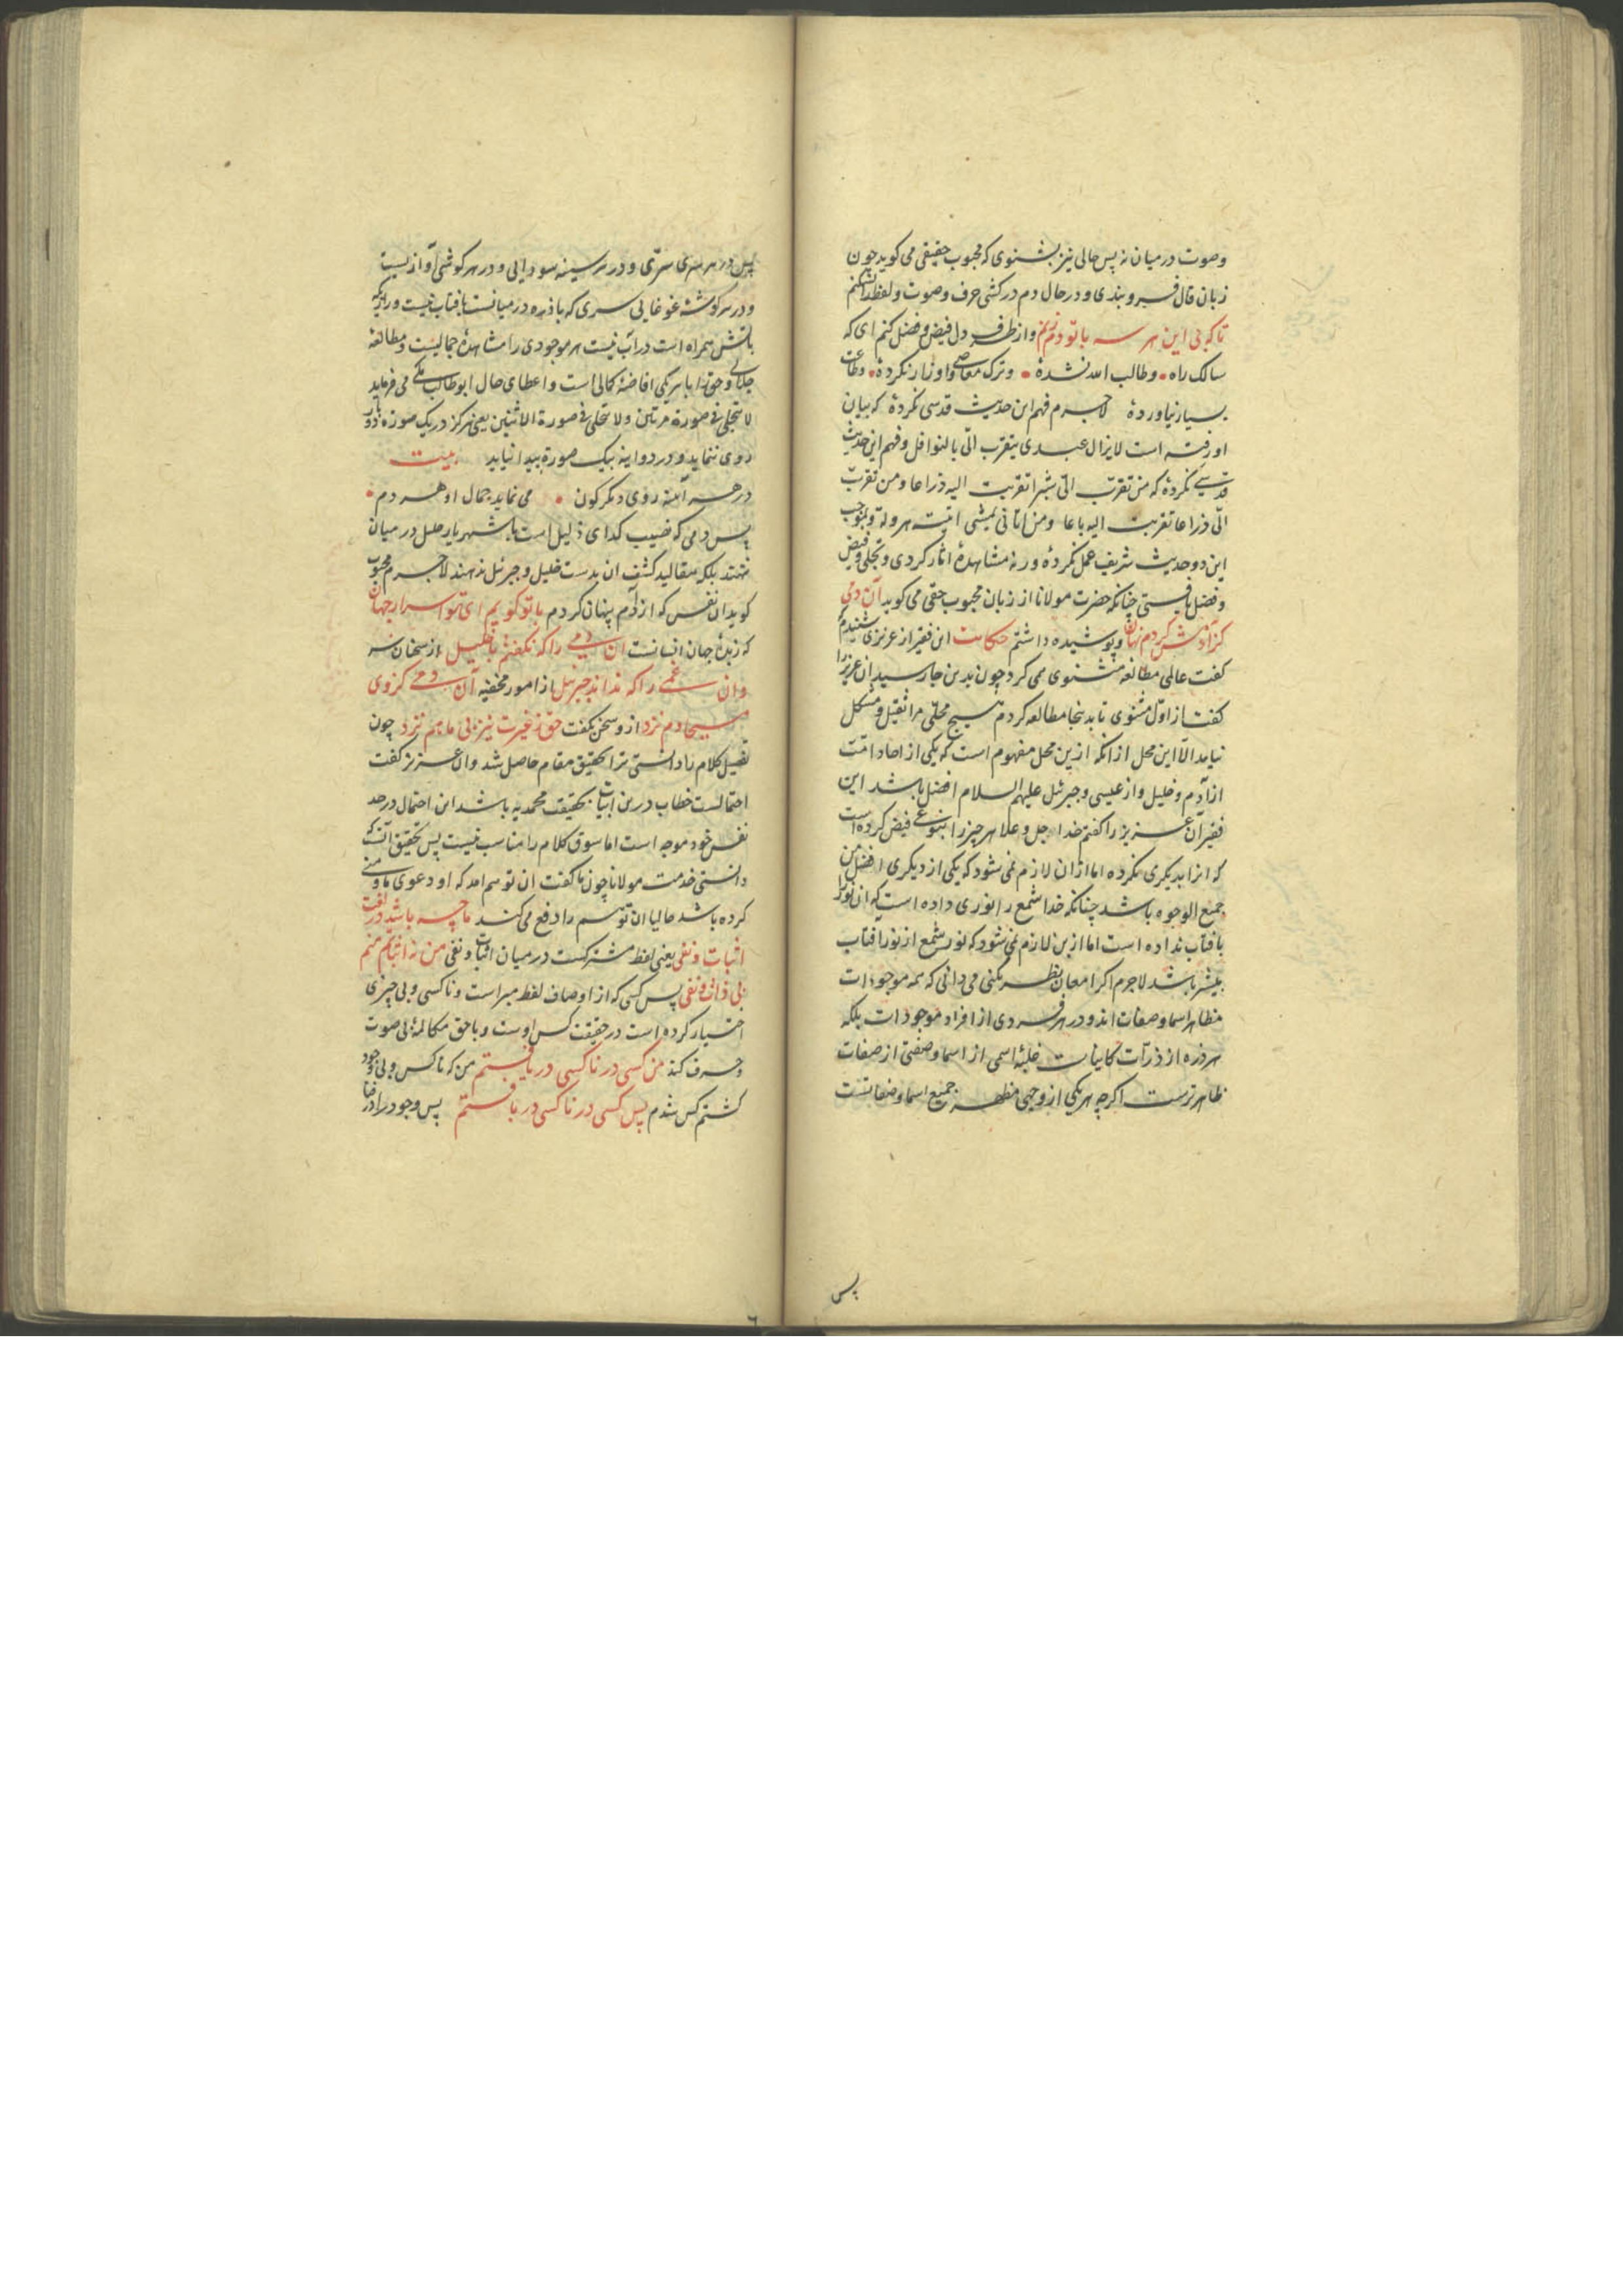 وصوت در میان نه پس حالی نیز بشنوی که محبوب حقیقی می کوید چون
زبان قال فرو بندی و در حال دم در کشی حرف و صوت و لفظ را
تا که بی این هر سه با تو دم زنم و از طرف دل فیض و فضل کنم ای که
سالک راه و طالب الله نشدهٔ و ترک معاصی و اوزار نکردهٔ و طاعت
بسیار نیاوردهٔ لاجرم فهم این حدیث قدسی نکردهٔ که بیان
او رفته است لا یزال عبدی یتقرب الیّ بالنوافل و فهم این حدیث
قدسی نکردهٔ که من تقرّب الیّ شبرا تقربت الیه ذراعا و من تقرّب
الیّ ذراعا تقربت الیه باعا و من اتانی یمشی اتیته هرولة و بموجب
این دو حدیث شریف عمل نکردهٔ ورنه مشاهدهٔ اثار کردی و تجلی و فیض
و فضل یافتی چنانکه حضرت مولانا از زبان محبوب حقی می کوید آن دمی
کز آدمش کردم نهان و پوشیده داشتم حکایت این فقیر از عزیزی شنیدم
کفت عالمی مطالعهٔ مثنوی می کرد چون بدین جا رسید ان عزیز را
کفت از اوّل مثنوی تا بدینجا مطالعه کردم هیچ محلی مرا ثقیل و مشکل
نیامد الّا این محل از انکه ازین محل مفهوم است که یکی از احاد امّت
از آدم و خلیل و از عیسی و جبرئل علیهم السلام افضل باشد این
فقیر آن عزیز را کفتم خدا جل و علا هر چیز را بنوعی فیض کرده است
که انرا بدیکری نکرده اما ازان لازم نمی شود که یکی از دیکری افضل من
جمیع الوجوه باشد چنانکه خدا شمع را نوری داده است که ان نور را
بافتاب نداده است اما ازین لازم نمی شود که نور شمع از نور افتاب
بیشتر باشد لاجرم اکر امعان نظر بکنی می دانی که همه موجودات
مظاهر اسما و صفات اند و در هر فردی از افراد موجودات بلکه
هر ذره از ذرّات کاینات غلبهٔ اسمی از اسما و صفتی از صفات
ظاهرترست اکرچه هر یکی از وجهی مظهر جمیع اسما و صفاتست
پس
پس در هر سری سرّی و در هر سینه سودایی و در هر کوشی آوازیست
و در هر کوشهٔ غوغایی سری که با ذره در میانست بافتاب نیست و رازی که
باتش همراه است در آب نیست هر موجودی را مشاهدهٔ جمالیست و مطالعهٔ
جلالی و حق را با هر یکی افاضهٔ کمالی است و اعطای حال ابو طالب مکّی می فرماید
لا یتجلی فی صورة مرتین و لا یتجلی فی صورة الاثنین یعنی هرکز در یک صورة دو بار
روی ننماید و در دو اینه بیک صورة پیدا نیاید بیت
در هر آئنه روی دیکرکون می نماید جمال او هر دم
پس دمی که نصیب کدای ذلیل است با شهریار جلیل در میان
ننهند بلکه مقالید کشف ان بدست خلیل و جبرئل ندهند لاجرم محبوب
کوید ان نفس که از آدم پنهان کردم با تو کویم ای تو اسرار جهان
که زبدهٔ جهان انسانست ان دمی را که نکفتم با خلیل از سخنان سر
وان غمی را که نداند جبرئل از امور مخفیه آن دمی کز وی
مسیحا دم نزد از و سخن نکفت حق ز غیرت نیز بی ما هم نزد چون
تفصیل کلام را دانستی ترا تحقیق مقام حاصل شد وان عزیز کفت
احتمالست خطاب درین ابیات بحقیقت محمدیه باشد این احتمال در حد
نفس خود موجه است اما سوق کلام را مناسب نیست پس تحقیق آنست که
دانستی خدمت مولانا چون ما کفت ان توهم امد که او دعوی ما و منی
کرده باشد حالیا ان توهم را دفع می کند ما چه باشد در لغت
اثبات و نفی یعنی لفظ مشترکست در میان اثبات و نفی من نه اثباتم منم
بی ذات و نفی پس کسی که از اوصاف لفظ مبراست و ناکسی و بی چیزی
اختیار کرده است در حقیقت کس اوست و با حق مکالمهٔ بی صوت
و حرف کند من کسی در ناکسی دریافتم من که ناکس و بی وجود
کشتم کس شدم پس کسی در ناکسی دربافتم پس وجود را در فنا